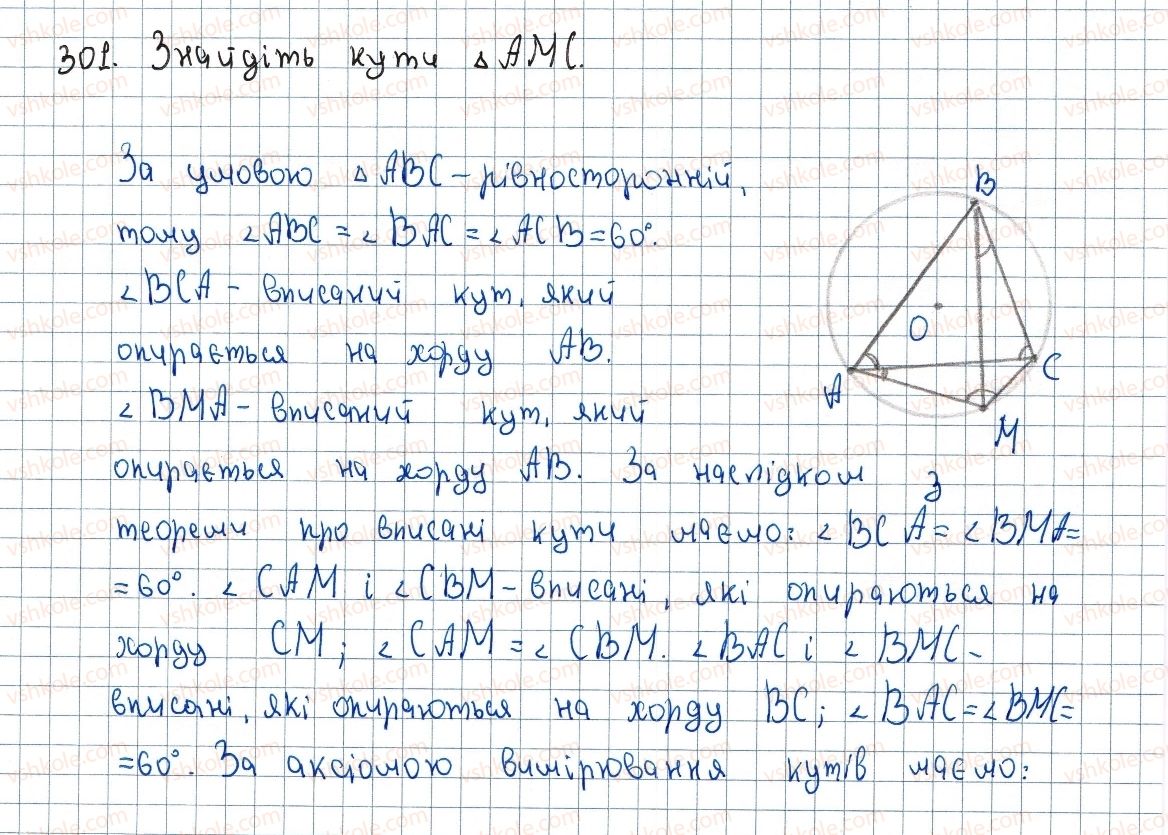 301. Знайдіть кути △AMC.
За умовою △ABC - рівносторонній,
тому ∠ABC = ∠BAC = ∠ACB = 60°.
∠BCA - вписаний кут, який
опирається на хорду AB.
∠BMA - вписаний кут, який
опирається на хорду AB. За наслідком з
теореми про вписані кути маємо: ∠BCA = ∠BMA =
= 60°. ∠CAM і ∠CBM - вписані, які опираються на
хорду CM; ∠CAM = ∠CBM. ∠BAC і ∠BMC -
вписані, які опираються на хорду BC; ∠BAC = ∠BMC =
= 60°. За аксіомою вимірювання кутів маємо:
B
O
A
C
M
vshkole.com